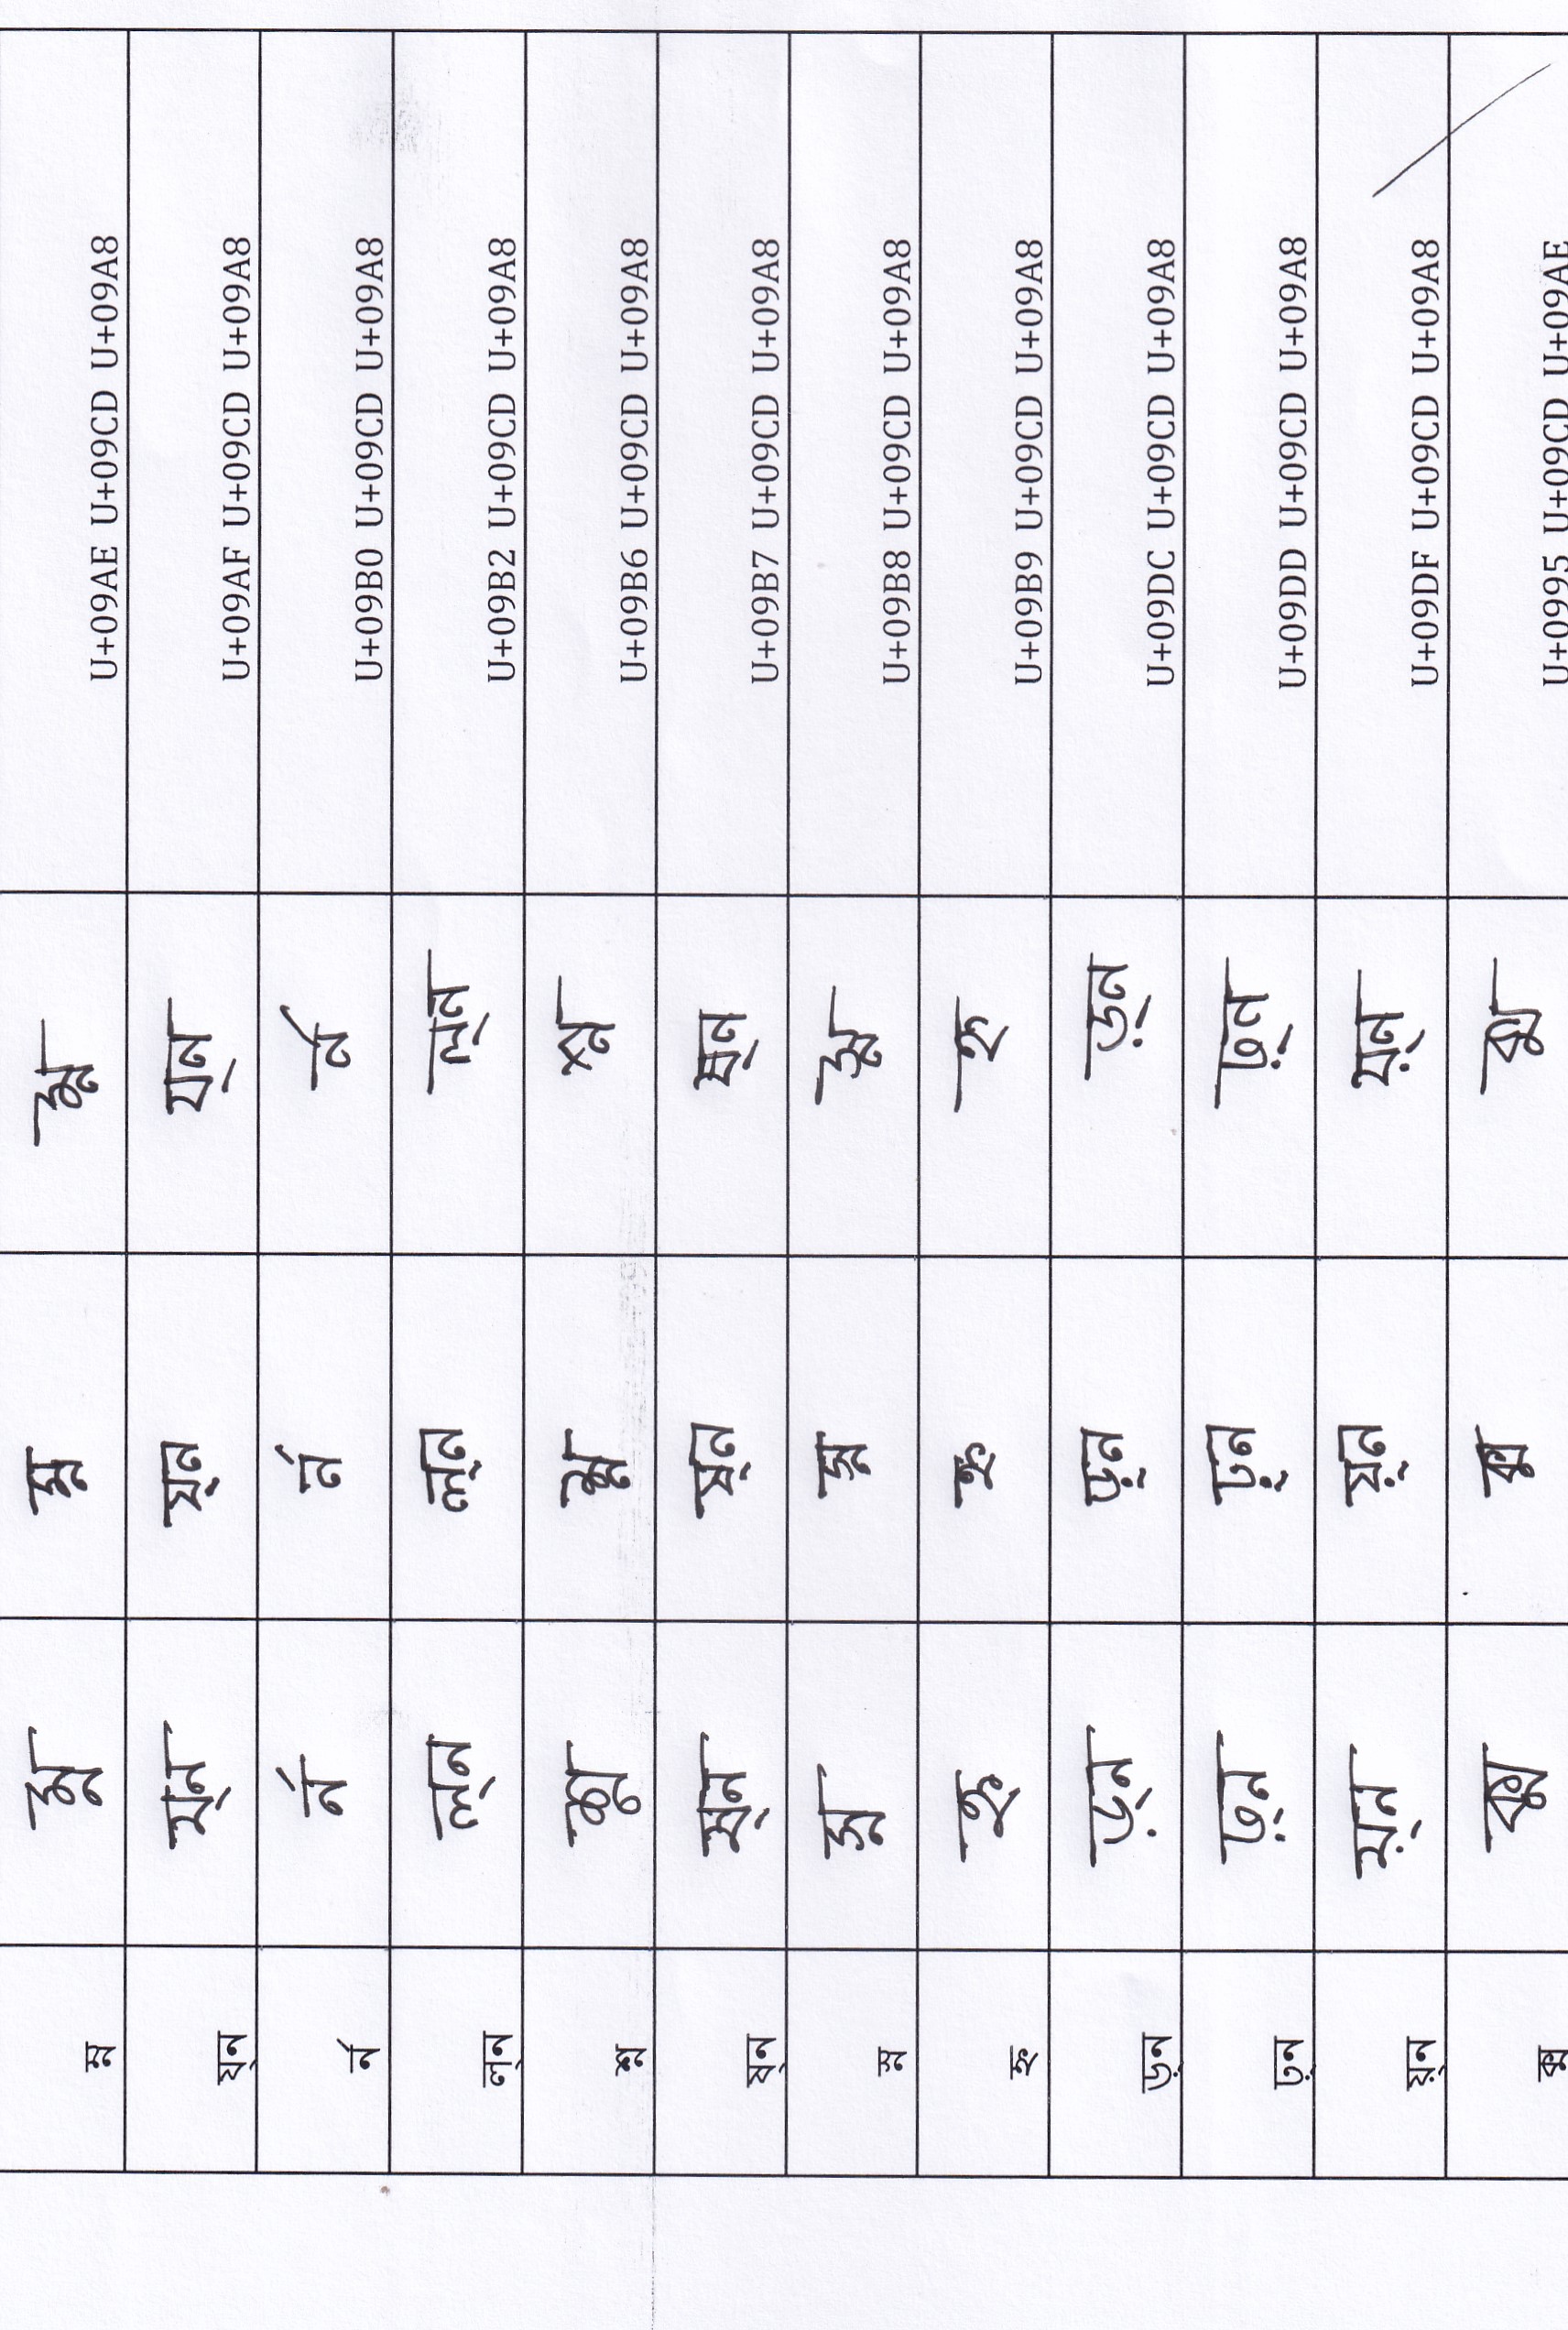 ম্ন ম্ন ম্ন ম্ন U+09AE U+09CD U+09A8
য্ন য্ন য্ন য্ন U+09AF U+09CD U+09A8
র্ন র্ন র্ন র্ন U+09B0 U+09CD U+09A8
ল্ন ল্ন ল্ন ল্ন U+09B2 U+09CD U+09A8
শ্ন শ্ন শ্ন শ্ন U+09B6 U+09CD U+09A8
ষ্ন ষ্ন ষ্ন ষ্ন U+09B7 U+09CD U+09A8
স্ন স্ন স্ন স্ন U+09B8 U+09CD U+09A8
হ্ন হ্ন হ্ন হ্ন U+09B9 U+09CD U+09A8
ড়্ন ড়্ন ড়্ন ড়্ন U+09DC U+09CD U+09A8
ঢ়্ন ঢ়্ন ঢ়্ন ঢ়্ন U+09DD U+09CD U+09A8
য়্ন য়্ন য়্ন য়্ন U+09DF U+09CD U+09A8
ক্ম ক্ম ক্ম ক্ম U+0995 U+09CD U+09AE